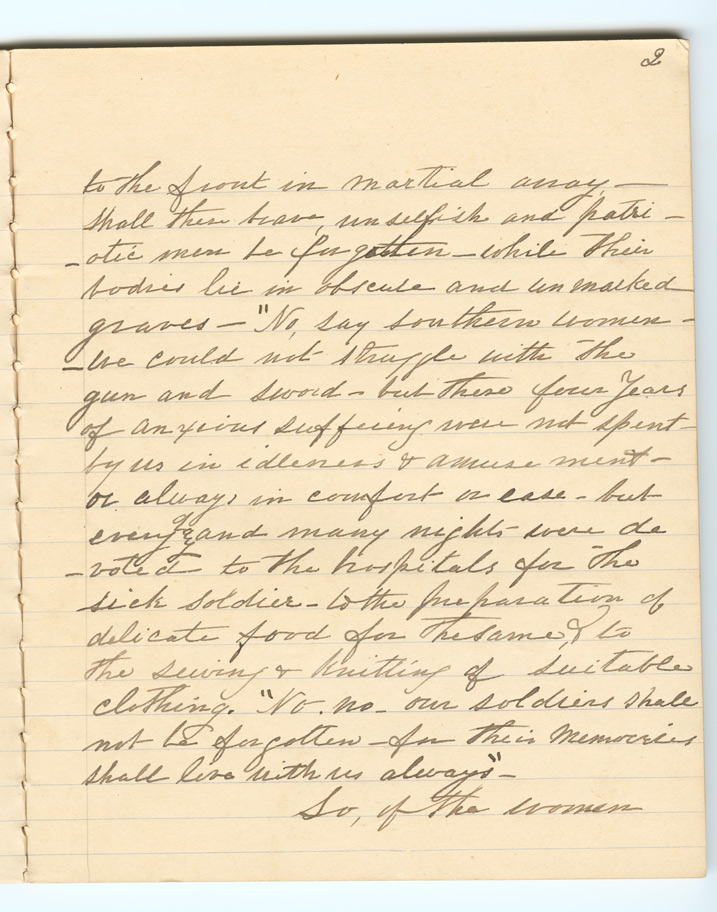 2
to the front in martial array, —
shall these brave, unselfish and patri-
-otic men be forgotten — while their
bodies lie in obscure and unmarked
graves — "No, say southern women —
-we could not struggle with the
gun and sword — but these four years
of anxious suffering were not spent
by us in idleness & amusement —
or always in comfort or ease — but
every day and many nights were de
-voted to the hospitals for the
sick soldier — to the preparation of
delicate food for the same, & to
the sewing & knitting of suitable
clothing. "No. no — our soldiers shall
not be forgotten — for their memories
shall live with us always" —
So, if the women